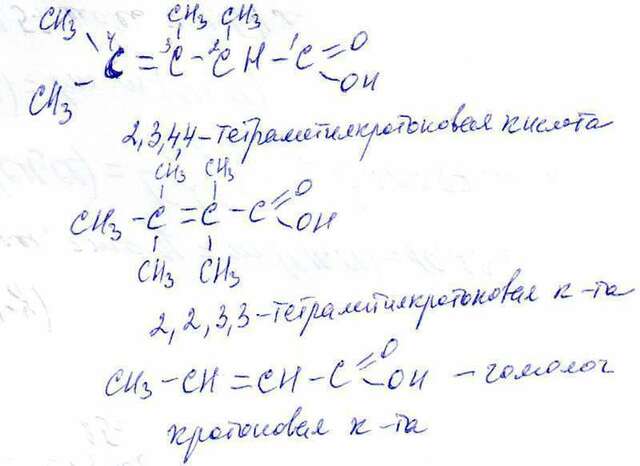 CH3 CH3 CH3
4 3 2 1 O
C = C - CH - C
CH3 OH
2,3,4,4-тетраметилкротоновая кислота
CH3 CH3
O
CH3 - C = C - C - OH
CH3 CH3
2,2,3,3-тетраметилкротоновая к-та
O
CH3 - CH = CH - C - OH - гомолог
кротоновая к-та